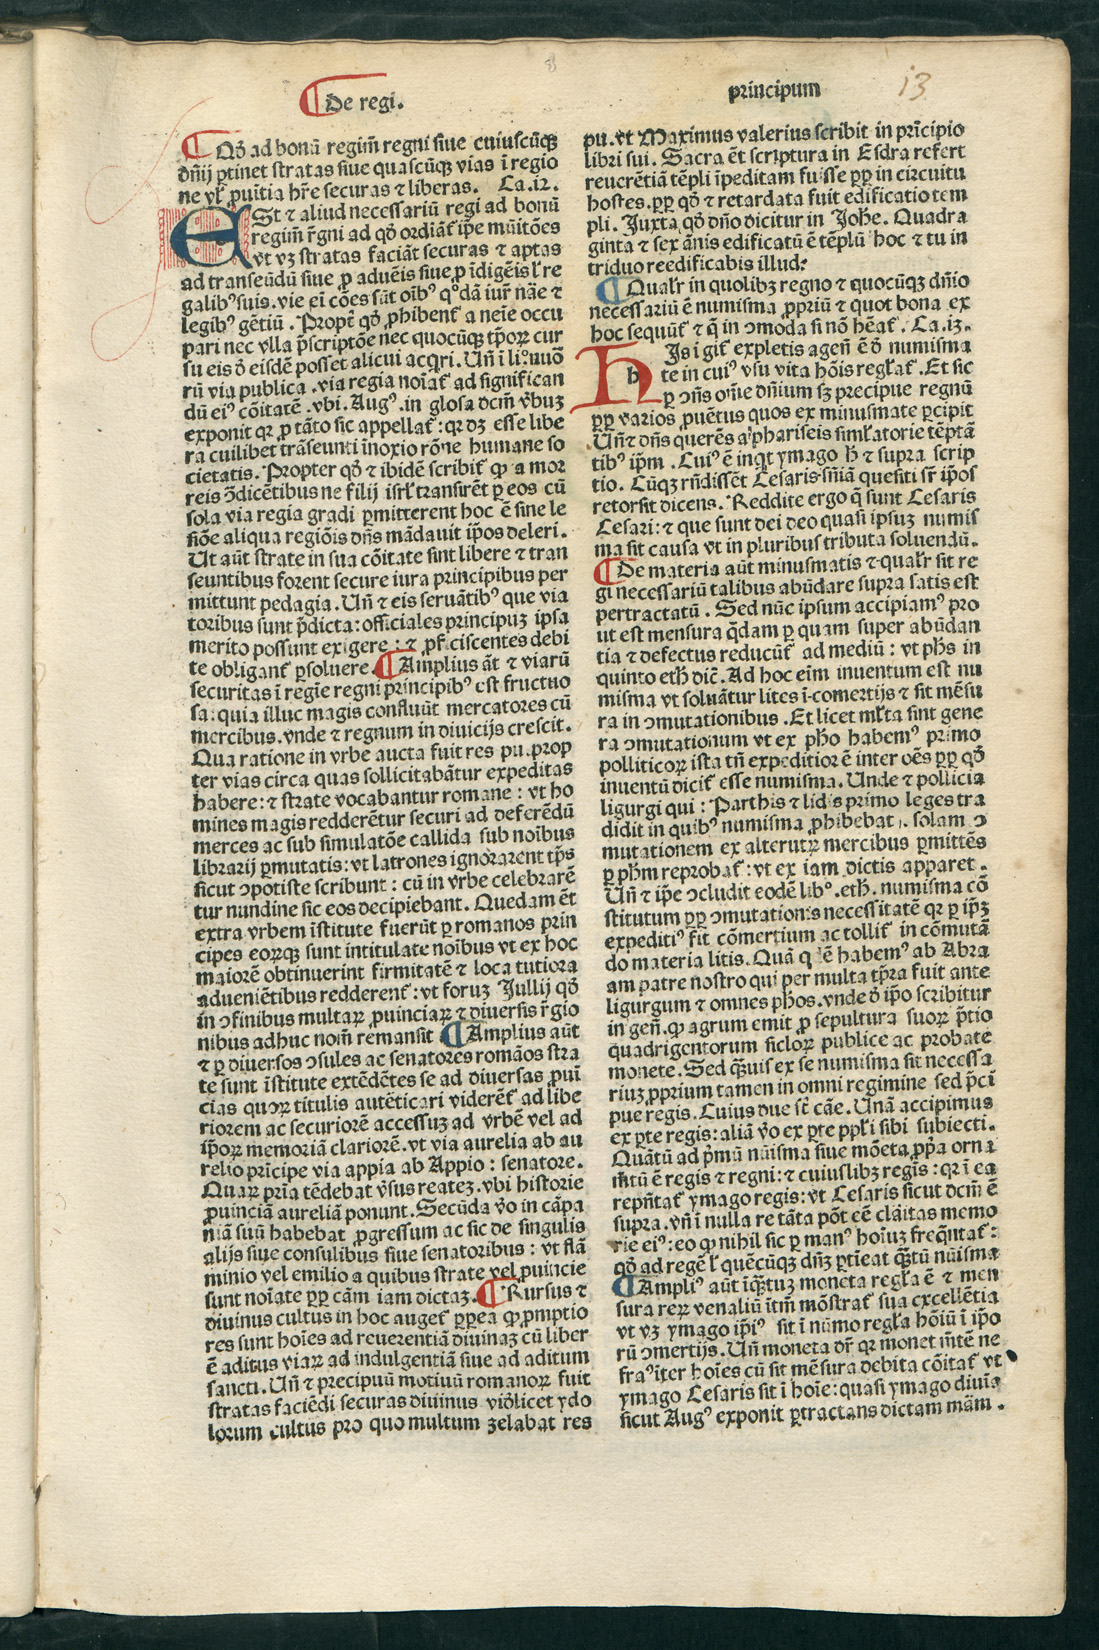 De regi.
principum
13
Qđ ad bonū regim̄ regni siue cuiuscūqꝫ
dn̄ij ꝑtinet stratas siue quascūqꝫ vias ī regio
ne vl̕ ꝓuītia hr̄e securas ⁊ liberas. Ca.12.
ESt ⁊ aliud necessariū regi ad bonū
regim̄ rēgni ad qđ ordiāt̕ ip̄e mūitōes
vt vꝫ stratas faciāt securas ⁊ aptas
ad transeūdū siue ꝓ aduēis siue ꝓ īdigēis l̕ re
galibꝰ suis. vie ei cōes sūt oībꝰ qͦdā iur̄ nāe ⁊
legibꝰ gētiū. Propt̄ qđ ꝓhibent̕ a neīe occu
pari nec vlla p̄scriptōe nec quocūqꝫ tꝑꝝ cur
su eis đ eisdē posset alicui acq̄ri. Un̄ ī liͦ. nuō
rū via publica. via regia noīat̕ ad significan
dū eiꝰ cōitatē. vbi. Augꝰ. in glosa dcm̄ v̄buꝫ
exponit qꝛ ꝓ tāto sic appellat̕: qꝛ dꝫ esse libe
ra cuilibet trāseunti īnoxio rōne humane so
cietatis. Propter qđ ⁊ ibidē scribit̕ ꝙ a mor
reis ↄ̄dicētibus ne filij isrl̕ transirēt ꝑ eos cū
sola via regia gradi ꝑmitterent hoc ē sine le
siōe aliqua regiōis dn̄s mādauit ip̄os deleri.
Ut aūt strate in sua cōitate sint libere ⁊ tran
seuntibus forent secure iura principibus per
mittunt pedagia. Un̄ ⁊ eis seruātibꝰ que via
toribus sunt p̄dicta: officiales principuꝫ ipsa
merito possunt exigere: ⁊ ꝓficiscentes debi
te obligant̕ ꝑsoluere. Amplius āt ⁊ viarū
securitas ī regie regni principibꝰ est fructuo
sa: quia illuc magis confluūt mercatores cū
mercibus. vnde ⁊ regnum in diuicijs crescit.
Qua ratione in vrbe aucta fuit res pu. prop
ter vias circa quas sollicitabātur expeditas
habere: ⁊ strate vocabantur romane: vt ho
mines magis redderētur securi ad deferēdū
merces ac sub simulatōe callida sub noībus
librarij ꝑmutatis: vt latrones ignorarent tp̄s
sicut ↄpotiste scribunt: cū in vrbe celebrarē
tur nundine sic eos decipiebant. Quedam ēt
extra vrbem īstitute fuerūt ꝑ romanos prin
cipes eoꝝqꝫ sunt intitulate noībus vt ex hoc
maiorē obtinuerint firmitatē ⁊ loca tutiora
adueniētibus redderent̕: vt foruꝫ Jullij qđ
in ↄfinibus multaꝝ ꝓuinciaꝝ ⁊ diuersis r̄gio
nibus adhuc nom̄ remansit Amplius aūt
⁊ ꝑ diuersos ↄsules ac senatores romāos stra
te sunt īstitute extēdētes se ad diuersas ꝓuī
cias quoꝝ titulis autēticari viderēt̕ ad libe
riorem ac securiorē accessuꝫ ad vrbē vel ad
ip̄oꝝ memoriā clariorē. vt via aurelia ab au
relio prīcipe via appia ab Appio: senatore.
Quaꝝ pr̄ia tēdebat v̄sus reateꝫ. vbi historie
ꝓuinciā aureliā ponunt. Secūda v̄o in cāpa
niā suū habebat ꝓgressum ac sic de singulis
alijs siue consulibus siue senatoribus: vt flā
minio vel emilio a quibus strate vel ꝓuincie
sunt noīate ꝑꝑ cām iam dictaꝫ. Rursus ⁊
diuinus cultus in hoc auget̕ ꝑꝑea ꝙ ꝓmptio
res sunt hoīes ad reuerentiā diuinaꝫ cū liber
ē aditus viaꝝ ad indulgentiā siue ad aditum
sancti. Un̄ ⁊ precipuū motiuū romanoꝝ fuit
stratas faciēdi securas diuinus viđlicet ydo
lorum cultus pro quo multum zelabat res
pu. vt Maximus valerius scribit in prīcipio
libri sui. Sacra ēt scriptura in Esdra refert
reuerētiā tēpli īpeditam fuisse ꝑꝑ in circuitu
hostes. ꝑꝑ qđ ⁊ retardata fuit edificatio tem
pli. Juxta qđ dn̄o dicitur in Joh̄e. Quadra
ginta ⁊ sex ānis edificatū ē tēplū hoc ⁊ tu in
triduo reedificabis illud:
Qualr̕ in quolibꝫ regno ⁊ quocūqꝫ dn̄io
necessariū ē numisma ꝓpriū ⁊ quot bona ex
hoc sequūt̕ ⁊ q̄ in ↄmoda si nō hēat̕. Ca.13.
HJs igit̕ expletis agen̄ ē đ numisma
te in cuiꝰ vsu vita hōis regl̄at̕. Et sic
ꝑ ↄn̄s om̄e dn̄ium sꝫ precipue regnū
ꝑꝑ varios ꝓuētus quos ex minusmate ꝑcipit
Un̄⁊ dn̄s querēs a phariseis siml̄atorie tēptā
tibꝰ ip̄m. Cuiꝰ ē inqt ymago h̄ ⁊ supra scrip
tio. Cūqꝫ rn̄dissēt Cesaris. sn̄iā quesiti sr̄ ip̄os
retorsit dicens. Reddite ergo q̄ sunt Cesaris
Cesari: ⁊ que sunt dei deo quasi ipsuꝫ numis
ma sit causa vt in pluribus tributa soluendū.
De materia aūt minusmatis ⁊ qualr̕ sit re
gi necessariū talibus abūdare supra satis est
pertractatū. Sed nūc ipsum accipiamꝰ pro
ut est mensura q̄dam ꝑ quam super abūdan
tia ⁊ defectus reducūt̕ ad mediū: vt ph̄s in
quinto eth̄ dic̄. Ad hoc eīm inuentum est nu
misma vt soluātur lites ī comertijs ⁊ sit mēsu
ra in ↄmutationibus. Et licet ml̄ta sint gene
ra ↄmutationum vt ex ph̄o habemꝰ primo
polliticoꝝ ista tn̄ expeditior ē inter oēs ꝑꝑ qđ
inuentū dicit̕ esse numisma. Unde ⁊ pollicia
ligurgi qui: Parthis ⁊ lidis primo leges tra
didit in quibꝰ numisma ꝓhibebat. solam ↄ
mutationem ex alterutꝝ mercibus ꝑmittēs
ꝑ ph̄m reprobat̕: vt ex iam dictis apparet.
Un̄ ⁊ ip̄e ↄcludit eodē libͦ. eth̄. numisma cō
stitutum ꝑꝑ ↄmutationis necessitatē qꝛ ꝑ ip̄ꝫ
expeditiꝰ fit cōmertium ac tollit̕ in cōmutā
do materia litis. Quā q ē habemꝰ ab Abra
am patre nostro qui per multa tp̄ra fuit ante
ligurgum ⁊ omnes ph̄os. vnde đ ip̄o scribitur
in gen̄. ꝙ agrum emit ꝓ sepultura suoꝝ p̄tio
quadrigentorum sicloꝝ publice ac probate
monete. Sed q̄uis ex se numisma sit necessa
riuꝫ ꝓprium tamen in omni regimine sed p̄ci
pue regis. Cuius due st̄ cāe. Unā accipimus
ex ꝑte regis: aliā v̄o ex ꝑte ppl̄i sibi subiecti.
Quātū ad p̄mū nūisma siue mōeta ꝓp̄a orna
m̄tū ē regis ⁊ regni: ⁊ cuiuslibꝫ regis: qꝛ ī ea
repn̄tat̕ ymago regis: vt Cesaris sicut dcm̄ ē
supra. vn̄ ī nulla re tāta pōt eē clāitas memo
rie eiꝰ: eo ꝙ nihil sic ꝑ manꝰ hoīuꝫ freq̄ntat̕:
qđ ad regē l̕ quēcūqꝫ dn̄ꝫ ꝑtīeat q̄tū nūisma
Ampliꝰ aūt īq̄tuꝫ moneta regl̄a ē ⁊ men
sura reꝝ venaliū ītm̄ mōstrat̕ sua excellētia
vt vꝫ ymago ip̄iꝰ sit ī nūmo regl̄a hoīū ī ip̄o
rū ↄmertijs. Un̄ moneta dr̄ qꝛ monet m̄tē ne
fraꝰ īter hoīes cū sit mēsura debita cōitat̕ vt
ymago Cesaris sit ī hoīe: quasi ymago diuīa
sicut Augꝰ exponit ꝑtractans dictam mām.